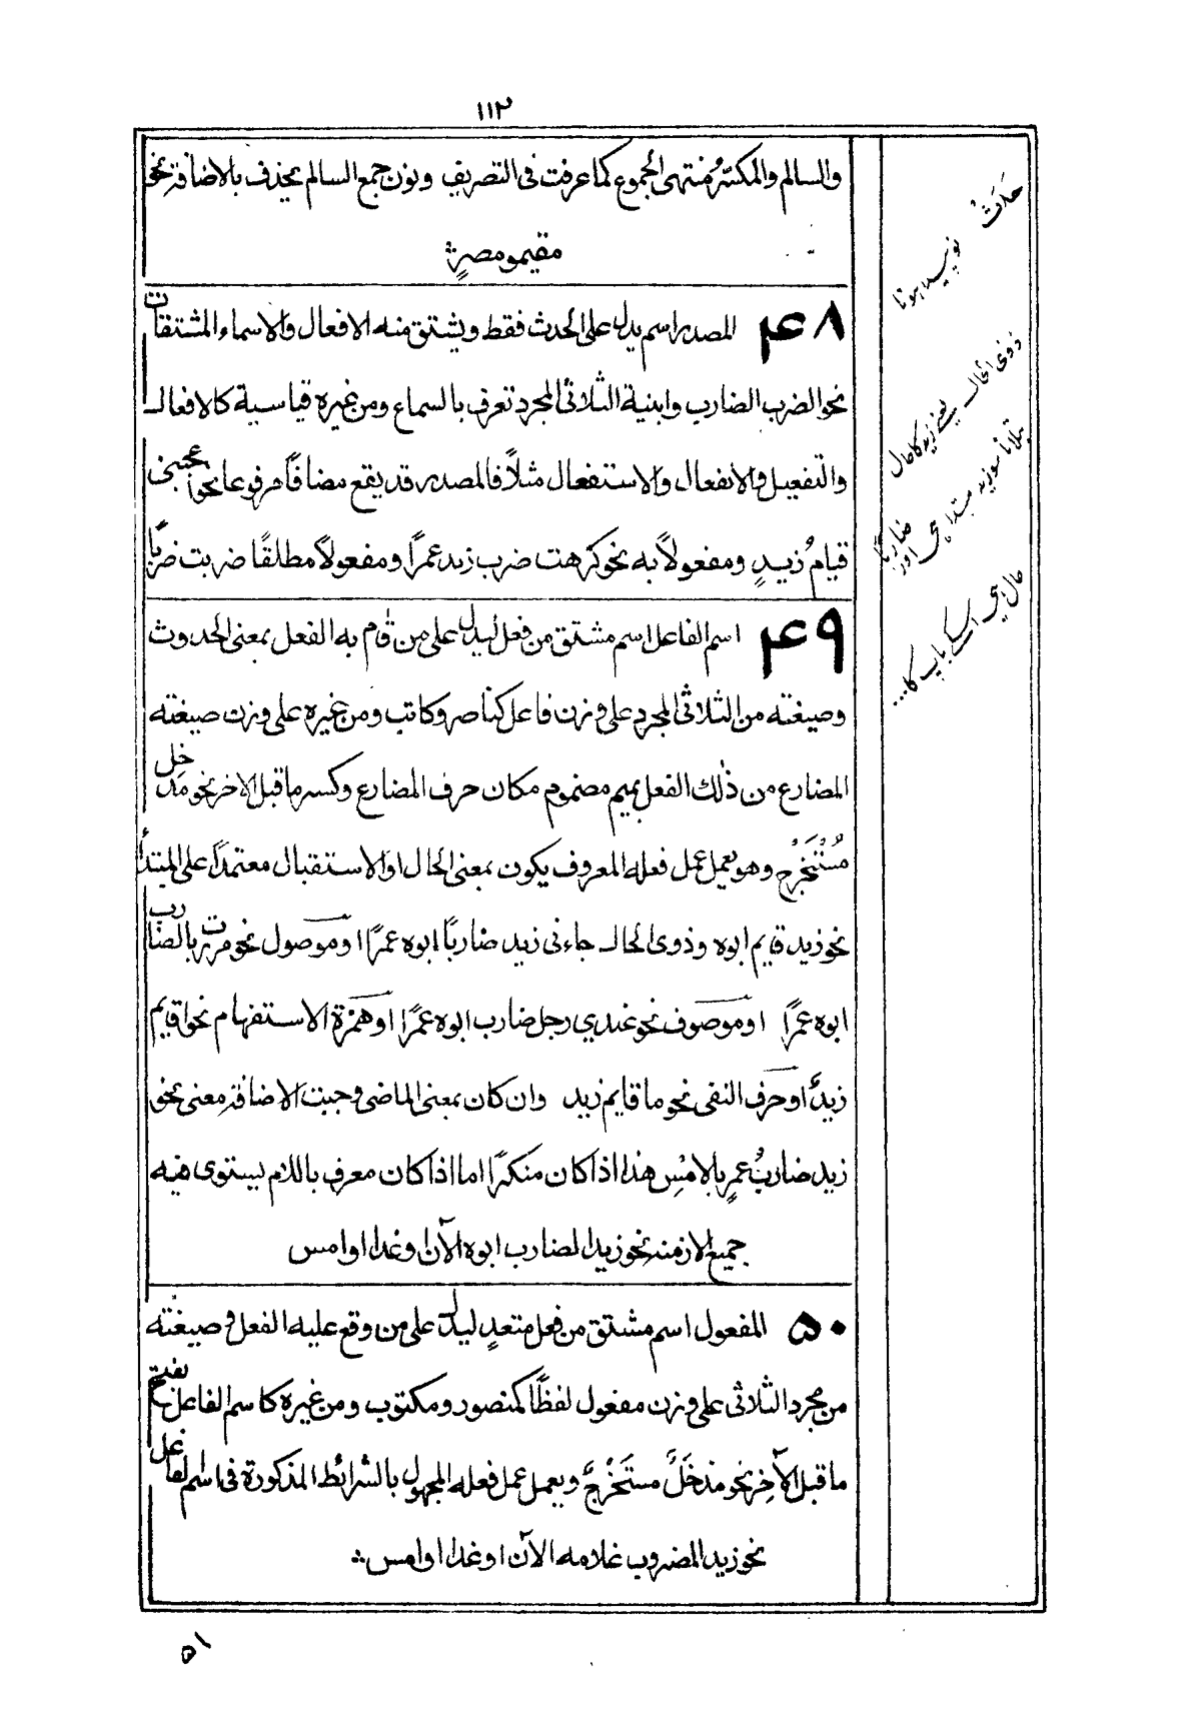 ۱۱۲
والسالم والمكسّر منتهى الجموع كما عرفت فى التصريف ونون جمع السالم يحذف بالاضافة نحو
مقيمو مصرٍ
۴۸ المصدر اسم يدل على الحدث فقط ويشتق منه الافعال والاسماء المشتقات
نحو الضرب الضارب وابنية الثلاثى المجرد تعرف بالسماع ومن غيره قياسية كالافعال
والتفعيل والانفعال والاستفعال مثلاً فالمصدر قد يقع مضافاً مرفوعا نحو اعجبنى
قيامُ زيدٍ ومفعولاً به نحو كرهت ضرب زيد عمرًا ومفعولاً مطلقًا ضربت ضربًا
۴۹ اسم الفاعل اسم مشتق من فعل ليدل على من قام به الفعل بمعنى الحدوث
وصيغته من الثلاثى المجرد على وزن فاعل كناصر وكاتب ومن غيره على وزن صيغته
المضارع من ذلك الفعل بميم مضموم مكان حرف المضارع وكسر ما قبل الاخر نحو مدخل
مُسْتَخْرِجْ وهو يعمل عمل فعله المعروف يكون بمعنى الحال او الاستقبال معتمدًا على المبتدأ
نحو زيد قايم ابوه وذوى الحال جاءنى زيد ضاربًا ابوه عمرًا او موصول نحو مررت بالضارب
ابوه عمرًا او موصوف نحو عندي رجل ضارب ابوه عمرًا او همزة الاستفهام نحو اقايم
زيدٌ او حرف النفى نحو ما قايم زيد وان كان بمعنى الماضى وجبت الاضافة معنى نحو
زيد ضاربُ عمرٍ بالامْسِ هذا اذا كان منكرًا اما اذا كان معرف باللام يستوى فيه
جميع الازمنه نحو زيد الضارب ابوه الآن او غدا او امس
۵۰ المفعول اسم مشتق من فعل متعدٍ ليدل على من وقع عليه الفعل و صيغته
من مجرد الثلاثى على وزن مفعول لفظًا كمنصور ومكتوب ومن غيره كاسم الفاعل بفتح
ما قبل الآخِر نحو مدخَلٌ مستَخْرَجٌ ويعمل عمل فعله المجهول بالشرائط المذكورة فى اسم الفاعل
نحو زيد المضروب غلامه الآن او غدا او امس
حَدَثْ
نوپید ہونا
ذوی الحال یعنے زید کا حال
بتلانا سو زید مبتدا ہی اور ضاربًا
حال ہی اسکے باپ کا...
۵۱